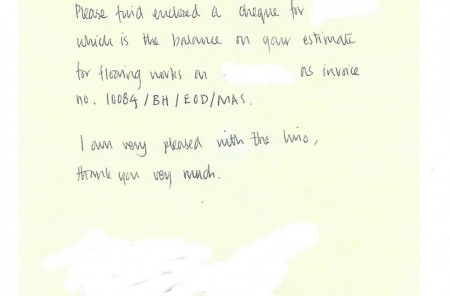 Please find enclosed a cheque for
which is the balance on your estimate
for flooring works on as invoice
no. 10084/BH/EOD/MAS.
I am very pleased with the lino,
thank you very much.